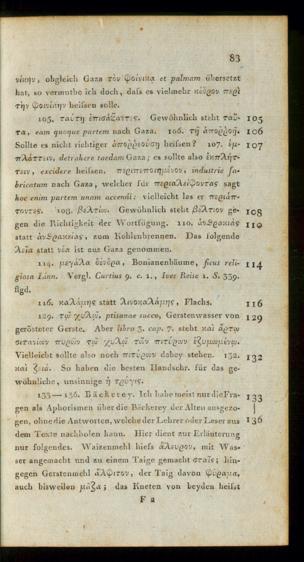 83
νίκην, obgleich Gaza τὸν φοίνικα et palmam übersetzt
hat, so vermuthe ich doch, dafs es vielmehr κέδρου περὶ
τὴν φοινίκην heifsen solle.
105. ταύτῃ ἐπισάξαντες. Gewöhnlich steht ταῦ- 105
τα, eam quoque partem nach Gaza. 106. τῇ ἀποῤῥοῇ. 106
Sollte es nicht richtiger ἀποῤῥεούσῃ heifsen? 107. ἐμ- 107
πλάττειν, detrahere taedam Gaza; es sollte also ἐκπλήτ-
τειν, excidere heifsen. περιπεποιημένον, industrie fa-
bricatum nach Gaza, welcher für περιαλείφοντας sagt
hoc enim partem unam accendi: vielleicht las er περιάπ-
τοντες. 108. βελτίω. Gewöhnlich steht βέλτιον ge- 108
gen die Richtigkeit der Wortfügung. 110. ἀνθρακιὰς 110
statt ἀνθρακείας, zum Kohlenbrennen. Das folgende
λεῖα statt νέα ist aus Gaza genommen.
114. μεγάλα δένδρα, Bonianenbäume, ficus reli- 114
giosa Linn. Vergl. Curtius 9. c. 1., Ives Reise 1. S. 339.
flgd.
116. καλάμης statt λινοκαλάμης, Flachs. 116
129. τῷ χυλῷ, ptisanae succo, Gerstenwasser von 129
gerösteter Gerste. Aber libro 3. cap. 7. steht καὶ ἄρτῳ
σιτανίων πυρῶν τῷ χυλῷ τῶν πιτύρων ἐζυμωμένῳ.
Vielleicht sollte also noch πιτύρων dabey stehen. 132. 132
καὶ ζειά. So haben die besten Handschr. für das ge-
wöhnliche, unsinnige ἢ τρύγις.
133—136. Bäckerey. Ich habe meist nur die Fra- 133
gen als Aphorismen über die Bäckerey der Alten ausgezo- |
gen, ohne die Antworten, welche der Lehrer oder Leser aus 136
dem Texte nachholen kann. Hier dient zur Erläuterung
nur folgendes. Waizenmehl hiefs ἄλευρον, mit Was-
ser angemacht und zu einem Taige gemacht σταῖς; hin-
gegen Gerstenmehl ἄλφιτον, der Taig davon φύραμα,
auch bisweilen μᾶζα; das Kneten von beyden heifst
F 2